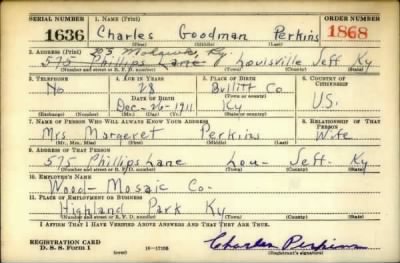 SERIAL NUMBER 1. NAME (Print) ORDER NUMBER
1636 Charles Goodman Perkins 1868
(First) (Middle) (Last)
2. ADDRESS (Print)
575 Phillips Lane Louisville Jeff Ky
(Number and street or R. F. D. number) (Town) (County) (State)
3. TELEPHONE 4. AGE IN YEARS 5. PLACE OF BIRTH 6. COUNTRY OF CITIZENSHIP
No 28 Bullitt Co
DATE OF BIRTH (Town or county)
Dec-26-1911 Ky U.S.
(Exchange) (Number) (Mo.) (Day) (Yr.) (State or country)
7. NAME OF PERSON WHO WILL ALWAYS KNOW YOUR ADDRESS 8. RELATIONSHIP OF THAT PERSON
Mrs Margeret Perkins Wife
(Mr., Mrs., Miss) (First) (Middle) (Last)
9. ADDRESS OF THAT PERSON
575 Phillips Lane Lou- Jeff- Ky
(Number and street or R. F. D. number) (Town) (County) (State)
10. EMPLOYER'S NAME
Wood-Mosaic Co-
11. PLACE OF EMPLOYMENT OR BUSINESS
Highland Park Ky
(Number and street or R. F. D. number) (Town) (County) (State)
I AFFIRM THAT I HAVE VERIFIED ABOVE ANSWERS AND THAT THEY ARE TRUE.
REGISTRATION CARD
D. S. S. Form 1 (over) Charles Perkins
(Registrant's signature)